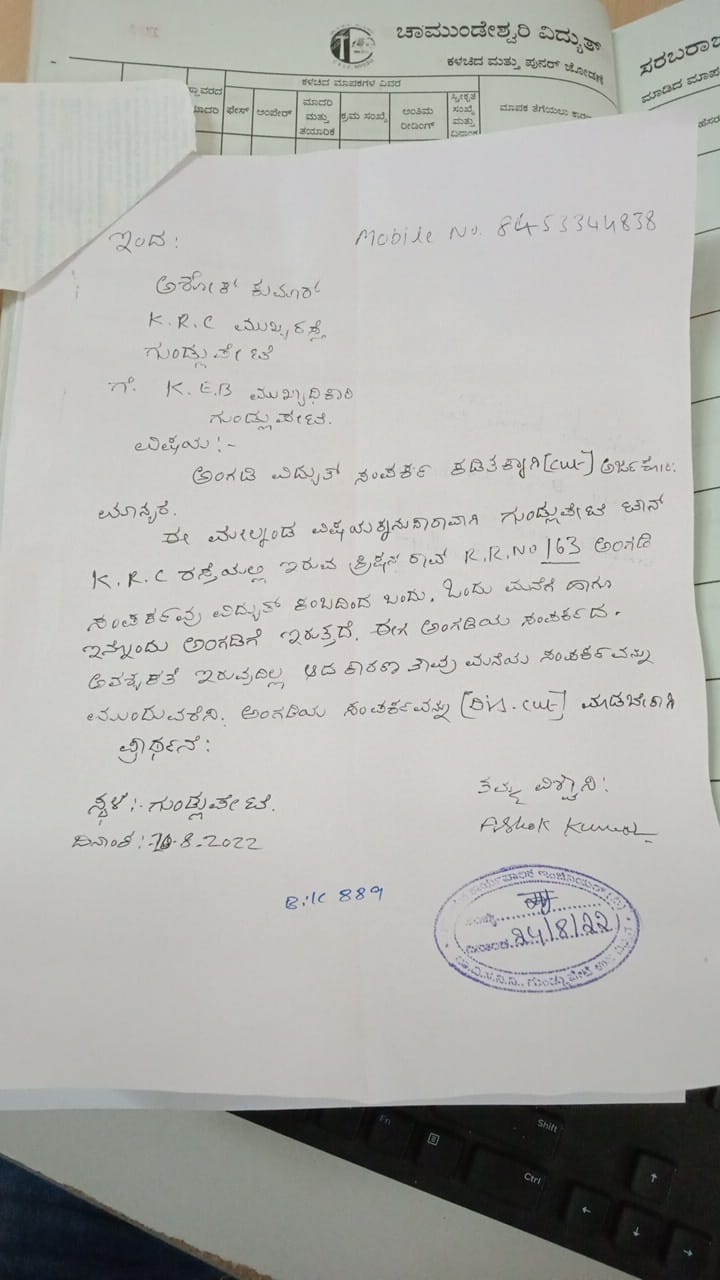 ಚಾಮುಂಡೇಶ್ವರಿ ವಿದ್ಯುತ್
ಸರಬರಾಜ
ಕಳಚಿದ ಮತ್ತು ಪುನರ್ ಜೋಡಣೆ
ಮಾಡಿದ ಮಾಪ
ಕಳಚಿದ ಮಾಪಕಗಳ ವಿವರ
ಸ್ಥಾವರದ ಮಾದರಿ
ಫೇಸ್
ಅಂಪೇರ್
ಮಾದರಿ ಮತ್ತು ತಯಾರಿಕೆ
ಕ್ರಮ ಸಂಖ್ಯೆ
ಅಂತಿಮ ರೀಡಿಂಗ್
ಸ್ವೀಕೃತ ಸಂಖ್ಯೆ ಮತ್ತು ದಿನಾಂಕ
ಮಾಪಕ ತೆಗೆಯಲು ಕಾರಣ
ಇಂದ :
Mobile No. 8453344838
ಅಶೋಕ್ ಕುಮಾರ್
K.R.C ಮುಖ್ಯರಸ್ತೆ
ಗುಂಡ್ಲುಪೇಟೆ
ಗೆ. K.E.B ಮುಖ್ಯಾಧಿಕಾರಿ
ಗುಂಡ್ಲುಪೇಟೆ.
ವಿಷಯ :-
ಅಂಗಡಿ ವಿದ್ಯುತ್ ಸಂಪರ್ಕ ಕಡಿತಕ್ಕಾಗಿ [cut] ಅರ್ಜಿ ಕೋರಿ:
ಮಾನ್ಯರೆ.
ಈ ಮೇಲ್ಕಂಡ ವಿಷಯಕ್ಕನುಸಾರಾವಾಗಿ ಗುಂಡ್ಲುಪೇಟೆ ಟೌನ್
K.R.C ರಸ್ತೆಯಲ್ಲಿ ಇರುವ ಕ್ರಿಷ್ಣನ ರಾವ್ R.R.No 163 ಅಂಗಡಿ
ಸಂಪರ್ಕವು ವಿದ್ಯುತ್ ಕಂಬದಿಂದ ಬಂದು. ಒಂದು ಮನೆಗೆ ಹಾಗೂ
ಇನ್ನೊಂದು ಅಂಗಡಿಗೆ ಇರುತ್ತದೆ. ಈಗ ಅಂಗಡಿಯ ಸಂಪರ್ಕದ.
ಅವಶ್ಯಕತೆ ಇರುವುದಿಲ್ಲ ಆದ ಕಾರಣ ತಾವು ಮನೆಯ ಸಂಪರ್ಕವನ್ನು
ಮುಂದುವರೆಸಿ. ಅಂಗಡಿಯ ಸಂಪರ್ಕವನ್ನು [Dis.cut] ಮಾಡಬೇಕಾಗಿ
ಪ್ರಾರ್ಥನೆ :
ತಮ್ಮ ವಿಶ್ವಾಸಿ :
ಸ್ಥಳ :- ಗುಂಡ್ಲುಪೇಟೆ.
Ashok Kumar
ದಿನಾಂಕ : 20-8-2022
889
ದಿನಾಂಕ 24/8/22
Fn
Shift
Ctrl